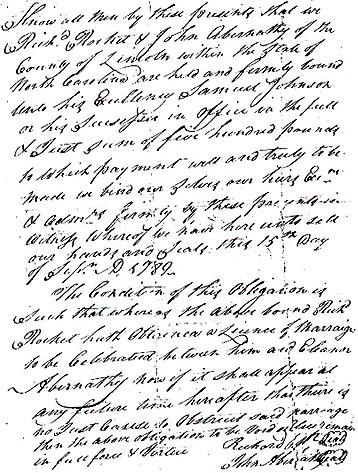 Know all men by these presents that we
Richd Rocket & John Abernathy of the
County of Lincoln within the State of
North Carolina are held and firmly bound
unto his Excellency Samuel Johnson
or his Successors in office in the full
& Just Sum of five hundred pounds
to which payment well and truly to be
made we bind our Selves our heirs Exrs
& admrs firmly by these presents in
witness whereof we have here unto sett
our hands and Seals this 15th Day
of Sepr AD 1789
The Condition of this Obligation is
Such that whereas the above bound Richd
Rocket hath Obtained a Licence of Marraige
to be Celebrated between him and Eleanor
Abernathy now if it shall appear at
any future time hereafter that there is
no Just Cause to Obstruct said marraige
then the above obligation to be Void or else remain
in full force & Virtue
Richard Seal
John Seal